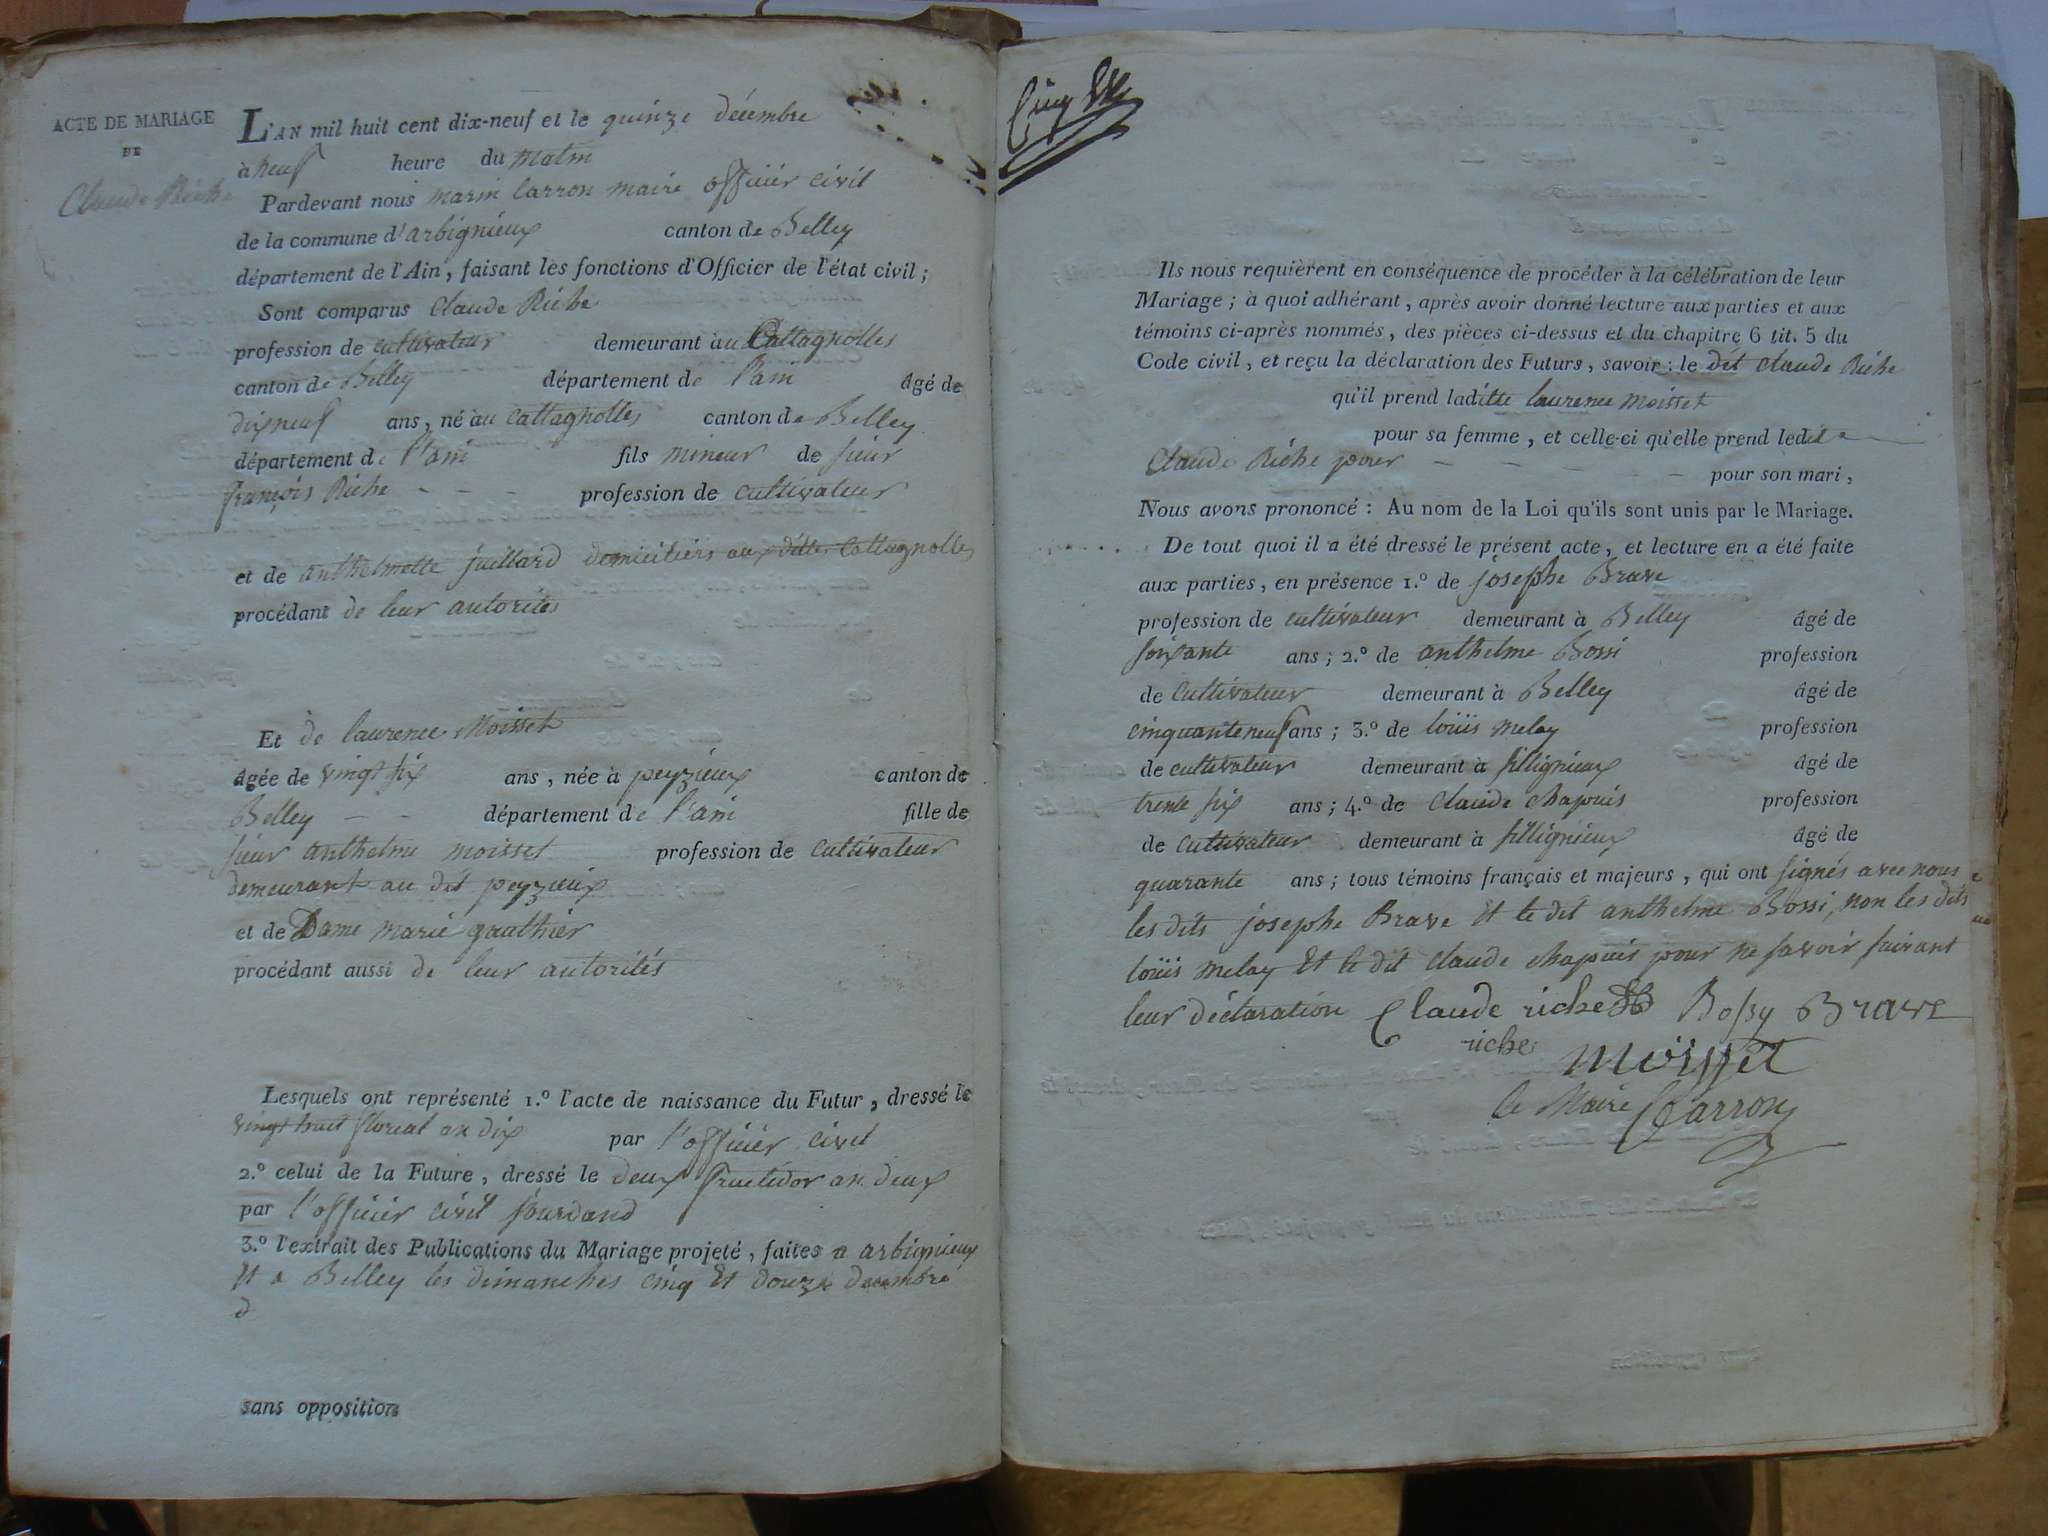 ACTE DE MARIAGE
DE
Claude Riche
L'AN mil huit cent dix-neuf et le quinze décembre
à neuf heure du matin
Pardevant nous marin Carron maire officier civil
de la commune d'arbignieux canton de Belley
département de l'Ain, faisant les fonctions d'Officier de l'état civil;
Sont comparus Claude Riche
profession de cultivateur demeurant au Cattagnolles
canton de Belley département de l'ain âgé de
dixneuf ans, né au cattagnolles canton de Belley
département de l'ain fils mineur de sieur
françois Riche - - - profession de cultivateur
et de anthelmette juillard domiciliers aux dittes Cattagnolles
procédant de leur autorités
Et de laurence Moisset
âgée de vingt six ans, née à peyzieux canton de
Belley - - département de l'ain fille de
sieur anthelme moisset profession de cultivateur
demeurant au dit peyzieux
et de Dame marie gauthier
procédant aussi de leur autorités
Lesquels ont représenté 1.º l'acte de naissance du Futur, dressé le
vingt huit floreal an dix par l'officier civil
2.º celui de la Future, dressé le deux fructidor an deux
par l'officier civil jourdand
3.º l'extrait des Publications du Mariage projeté, faites a arbignieux
Et a Belley les dimanches cinq Et douze decembre
d
sans opposition
Cinq
Ils nous requièrent en conséquence de procéder à la célébration de leur
Mariage; à quoi adhérant, après avoir donné lecture aux parties et aux
témoins ci-après nommés, des pièces ci-dessus et du chapitre 6 tit. 5 du
Code civil, et reçu la déclaration des Futurs, savoir: le dit Claude Riche
qu'il prend laditte laurence moisset
pour sa femme, et celle-ci qu'elle prend ledit
Claude Riche pour - - - - - pour son mari,
Nous avons prononcé: Au nom de la Loi qu'ils sont unis par le Mariage.
De tout quoi il a été dressé le présent acte, et lecture en a été faite
aux parties, en présence 1.º de josephe Brave
profession de cultivateur demeurant à Belley âgé de
soixante ans; 2.º de anthelme Bossi profession
de cultivateur demeurant à Belley âgé de
cinquante neuf ans; 3.º de loüis melay profession
de cultivateur demeurant à fittignieux âgé de
trente six ans; 4.º de Claude chapuis profession
de cultivateur demeurant à fittignieux âgé de
quarante ans; tous témoins français et majeurs, qui ont signés avec nous
les dits josephe Brave Et le dit anthelme Bossi, non les dits
loüis melay Et le dit claude chapuis pour ne savoir suivant
leur déclaration Claude riche Bossy Brave
riche moisset
le Maire Carron